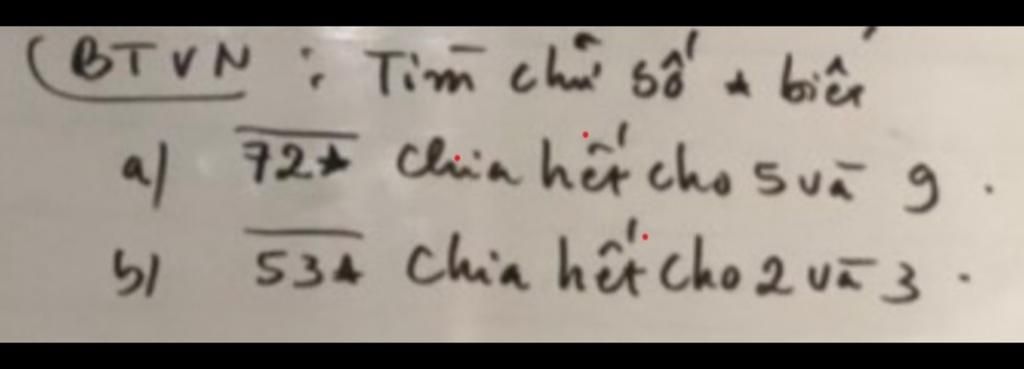 BTVN : Tìm chữ số * biết
a) 72* chia hết cho 5 và 9.
b) 53* chia hết cho 2 và 3.